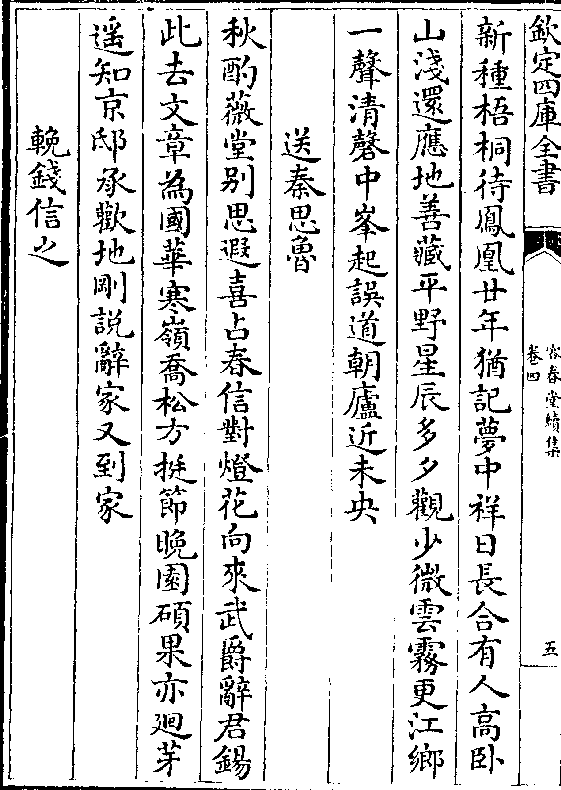 欽定四庫全書
容春堂續集
卷四
五
新種梧桐待鳳凰廿年猶記夢中祥日長合有人高卧
山淺還應地善藏平野星辰多夕觀少微雲霧更江鄉
一聲清磬中峯起誤道朝廬近未央
送秦思魯
秋酌薇堂别思遐喜占春信對燈花向來武爵辭君錫
此去文章為國華寒嶺喬松方挺節晚園碩果亦廻芽
遥知京邸承歡地剛説辭家又到家
輓錢信之